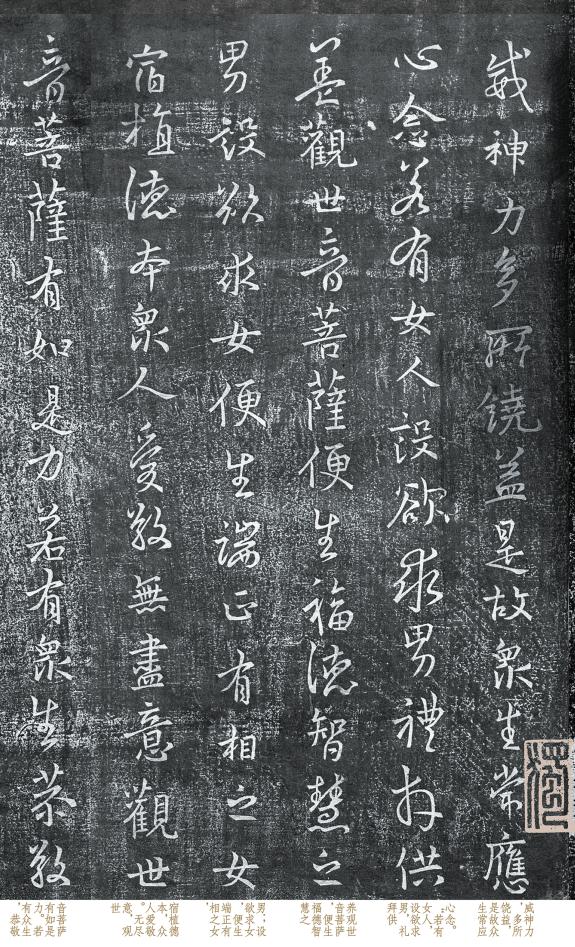 威神力多所饒益是故衆生常應
心念若有女人設欲求男禮拜供
養觀世音菩薩便生福德智慧之
男設欲求女便生端正有相之女
宿植德本衆人愛敬無盡意觀世
音菩薩有如是力若有衆生恭敬
威神力，多所饶益，是故众生常应
心念。；若有女人，设欲求男，礼拜供
养观世音菩萨，便生福德智慧之
男；设欲求女，便生端正有相之女
宿植德本，众人爱敬。无尽意，观世
音菩萨有如是力。若有众生，恭敬